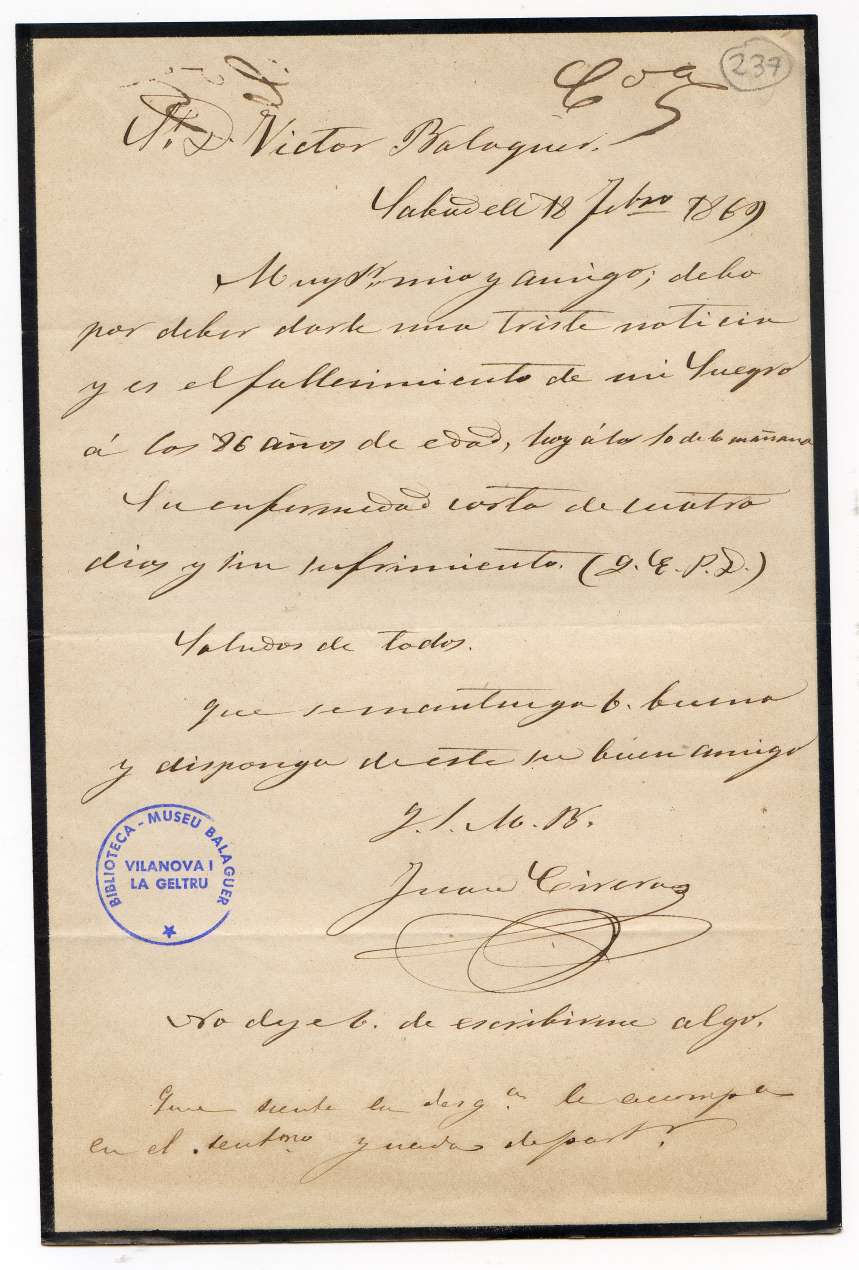 237
Sr. D. Victor Balaguer.
Sabadell 18 Febro 1869
Muy Sr. mio y amigo; debo
por deber darle una triste noticia
y es el fallecimiento de mi Suegro
á los 86 años de edad, hoy á las 10 de la mañana
Su enfermedad corta de cuatro
dias y sin sufrimiento. (Q. E. P. D.)
Saludos de todos.
que se mantenga V. bueno
y disponga de este su buen amigo
Q. S. M. B.
Juan Cirera
No deje V. de escribirme algo.
Que siente la desga. le acompa
en el sentmo y nada de part
BIBLIOTECA - MUSEU BALAGUER
VILANOVA I
LA GELTRU